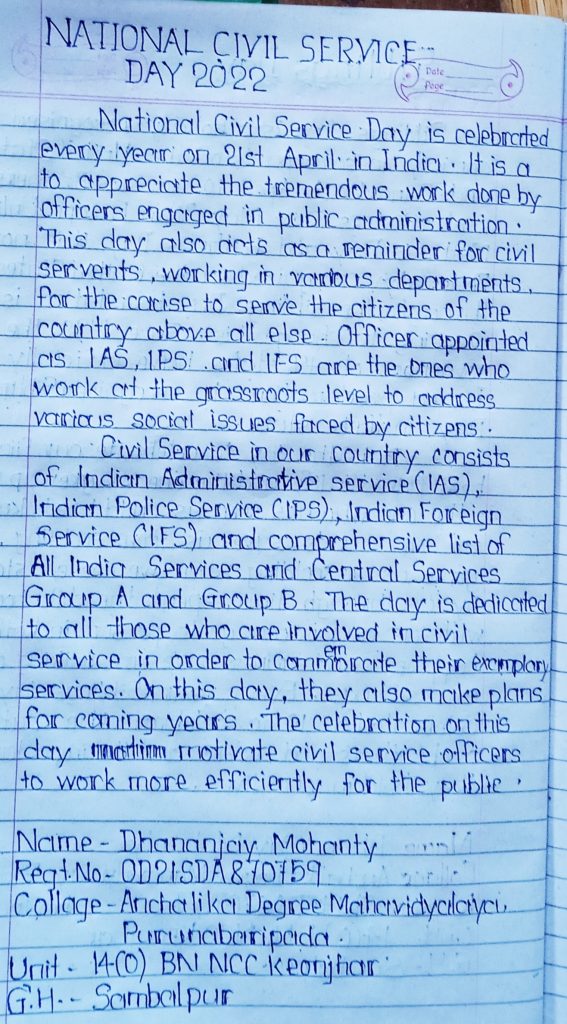 NATIONAL CIVIL SERVICE
DAY 2022
Date
Page
National Civil Service Day is celebrated
every year on 21st April in India. It is a
to appreciate the tremendous work done by
officers engaged in public administration.
This day also acts as a reminder for civil
servents, working in various departments,
for the cause to serve the citizens of the
country above all else. Officer appointed
as IAS, IPS and IFS are the ones who
work at the grassroots level to address
various social issues faced by citizens.
Civil Service in our country consists
of Indian Administrative service (IAS),
Indian Police Service (IPS), Indian Foreign
Service (IFS) and comprehensive list of
All India Services and Central Services
Group A and Group B. The day is dedicated
to all those who are involved in civil
service in order to commemorate their exemplary
services. On this day, they also make plans
for coming years. The celebration on this
day motivate civil service officers
to work more efficiently for the public.
Name - Dhananjay Mohanty
Regt. No - OD21SDA870759
Collage - Anchalika Degree Mahavidyalaya,
Purunabaripada.
Unit - 14(O) BN NCC Keonjhar
G.H. - Sambalpur